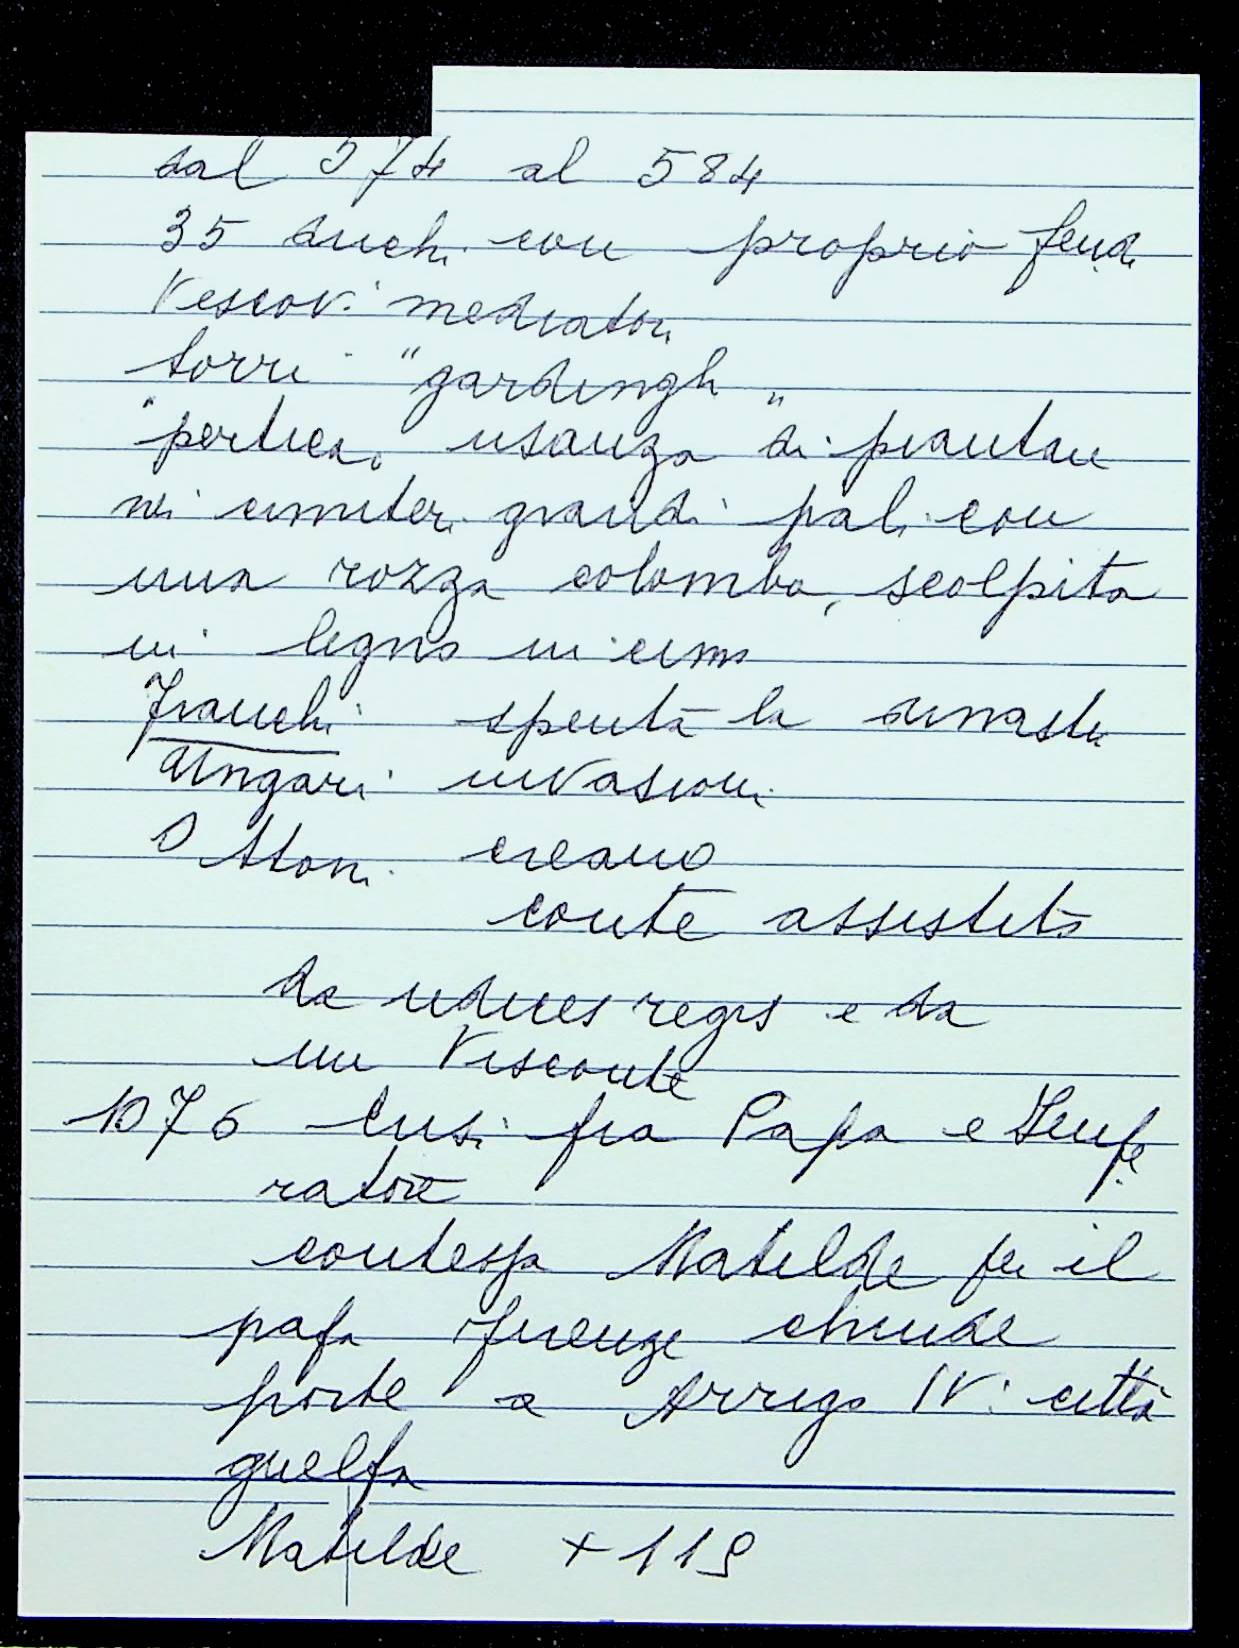 dal 574 al 584
35 duchi con proprio feudi
Vescovi mediatori
torri "gardinghi"
"pertica" usanza di piantare
nei cimiteri grandi pali con
una rozza colomba, scolpita
in legno in cima
Franchi spenta la dinastia
Ungari invasioni
Ottoni creano
conte assistito
da judices regis e da
un Visconte
1076 crisi fra Papa e Impe
ratore
contessa Matilde per il
papa Firenze chiude
porte a Arrigo IV: città
guelfa
Matilde + 115